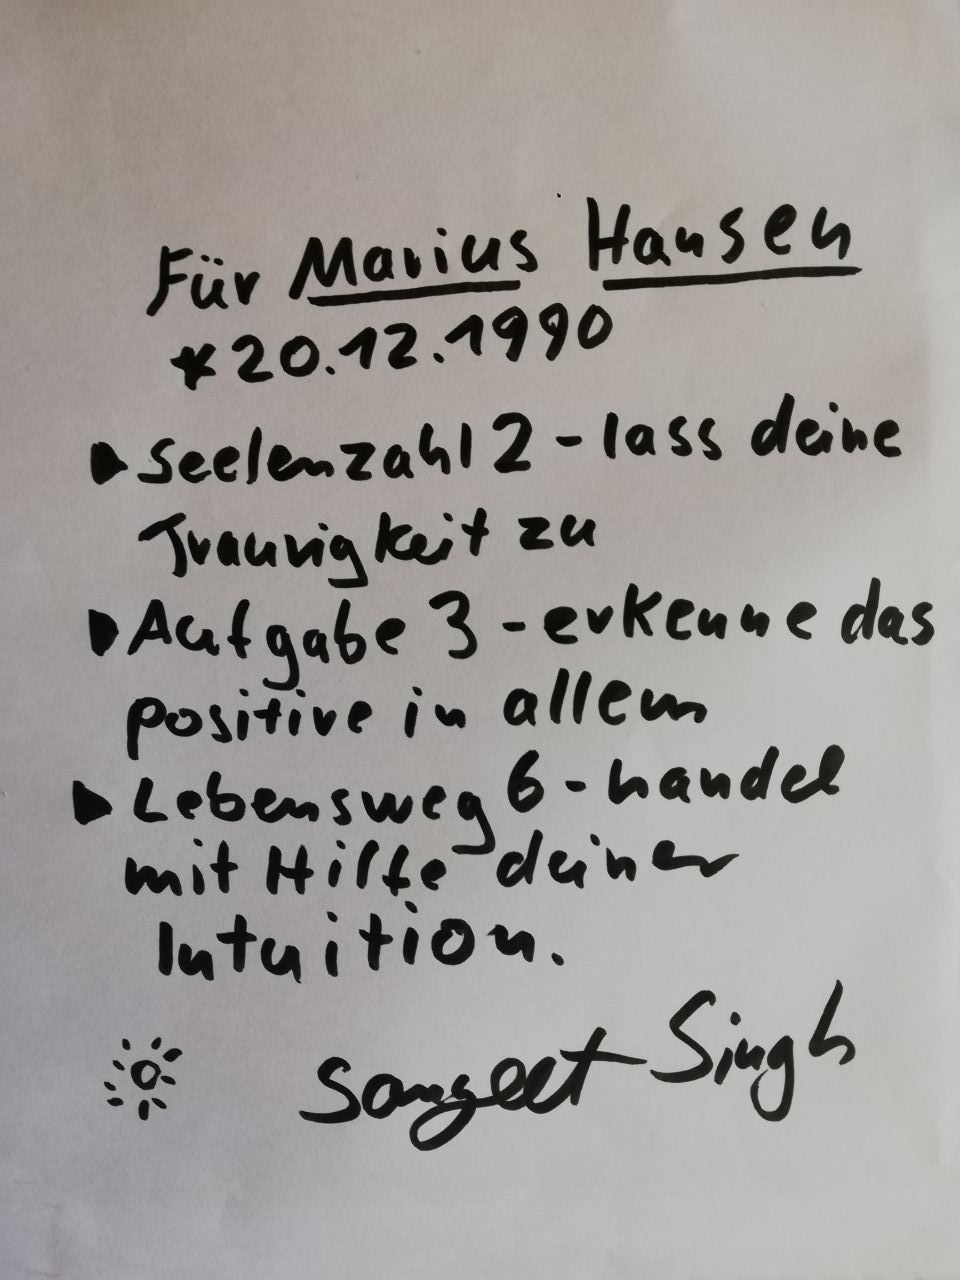 Für Marius Hansen
*20.12.1990
▶Seelenzahl 2 - lass deine
Traurigkeit zu
▶Aufgabe 3 - erkenne das
positive in allem
▶Lebensweg 6 - handel
mit Hilfe deiner
Intuition.
Sangeet Singh